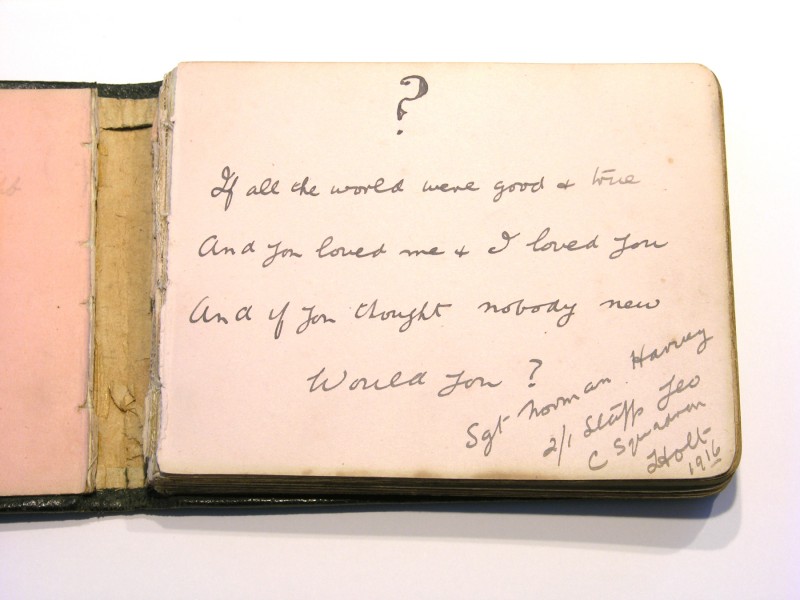 ?
If all the world were good & true
And you loved me & I loved you
And if you thought nobody new
Would you ?
Sgt Norman Harvey
2/1 Staffs Yeo
C Squadron
Holt
1916